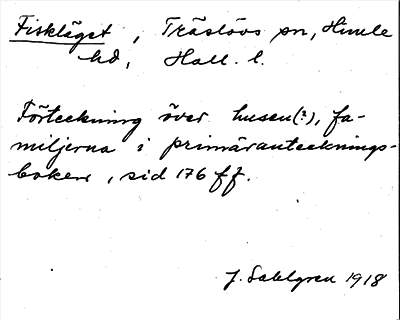 Fiskläget, Träslövs sn, Himle
hd, Hall. l.
Förteckning över husen(?), fa-
miljerna i primärantecknings-
boken, sid 176 ff.
J. Sahlgren 1918